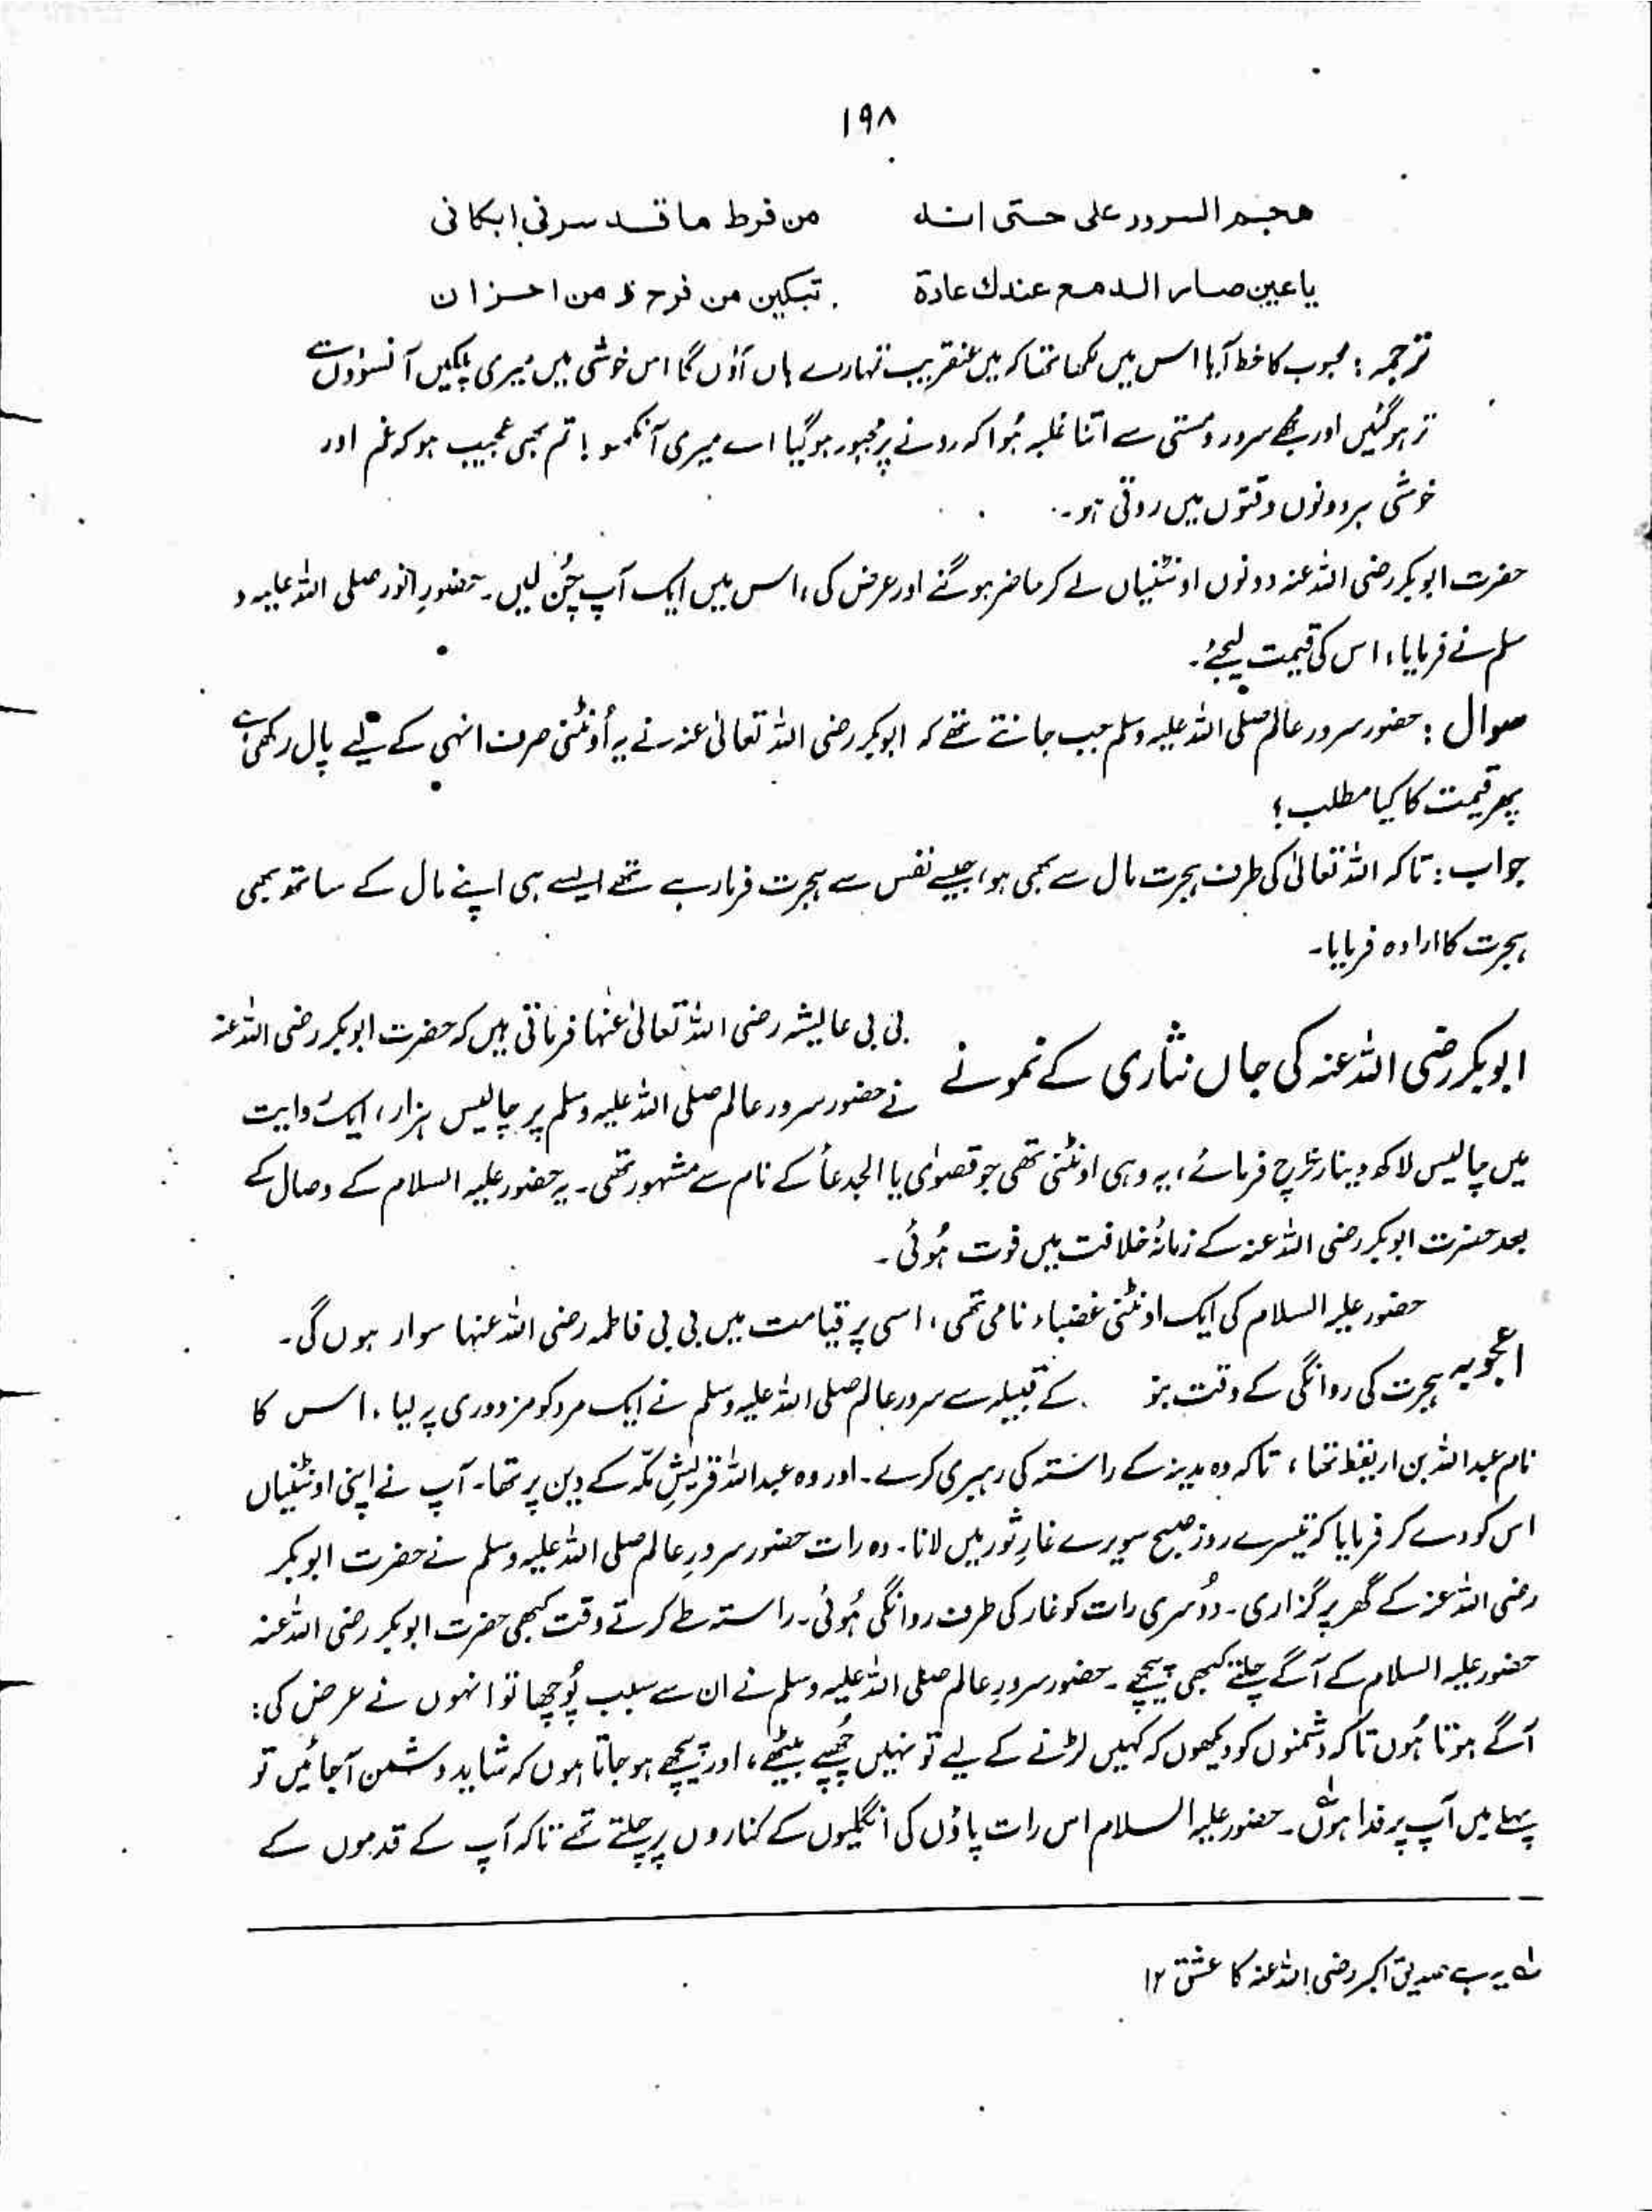 ١٩٨
هجم السرور على حتى انه من فرط ما قد سرنی ابکانی
يا عين صار الدمع عندك عادة تبكين من فرح و من احزان
ترجمہ : محبوب کا خط آیا اس میں لکھا تھا کہ میں عنقریب تمہارے ہاں آؤں گا اس خوشی میں میری پلکیں آنسوؤں سے
تر ہوگئیں اور مجھے سرور و مستی سے اتنا غلبہ ہُوا کہ رونے پر مجبور ہو گیا اے میری آنکھو ! تم بھی عجیب ہو کہ غم اور
خوشی ہر دونوں وقتوں میں روتی ہو۔
حضرت ابوبکر رضی اللہ عنہ دونوں اونٹنیاں لے کر حاضر ہو گئے اور عرض کی ، اس میں ایک آپ چُن لیں۔ حضورِ انور صلی اللہ علیہ و
سلم نے فرمایا ، اس کی قیمت لیجئے۔
سوال : حضور سرور عالم صلی اللہ علیہ وسلم جب جانتے تھے کہ ابوبکر رضی اللہ تعالیٰ عنہ نے یہ اُونٹنی صرف انہی کے لیے پال رکھی ہے
پھر قیمت کا کیا مطلب ؟
جواب : تاکہ اللہ تعالیٰ کی طرف ہجرت مال سے بھی ہو، جیسے نفس سے ہجرت فرما رہے تھے ایسے ہی اپنے مال کے ساتھ بھی
ہجرت کا ارادہ فرمایا۔
ابوبکر رضی اللہ عنہ کی جاں نثاری کے نمونے بی بی عایشہ رضی اللہ تعالیٰ عنہا فرماتی ہیں کہ حضرت ابوبکر رضی اللہ عنہ
نے حضور سرور عالم صلی اللہ علیہ وسلم پر چالیس ہزار ، ایک روایت
میں چالیس لاکھ دینار خرچ فرمائے ، یہ وہی اونٹنی تھی جو قصوٰی یا الجدعأ کے نام سے مشہور تھی۔ یہ حضور علیہ السلام کے وصال کے
بعد حضرت ابوبکر رضی اللہ عنہ کے زمانۂ خلافت میں فوت ہُوئی۔
حضور علیہ السلام کی ایک اونٹنی غضباء نامی تھی ، اسی پر قیامت میں بی بی فاطمہ رضی اللہ عنہا سوار ہوں گی۔
اعجوبہ ہجرت کی روانگی کے وقت بنو کے قبیلہ سے سرور عالم صلی اللہ علیہ وسلم نے ایک مرد کو مزدوری پر لیا ، اس کا
نام عبداللہ بن اریقط تھا ، تاکہ وہ مدینہ کے راستہ کی رہبری کرے۔ اور وہ عبداللہ قریشِ مکّہ کے دین پر تھا۔ آپ نے اپنی اونٹنیاں
اس کو دے کر فرمایا کہ تیسرے روز صبح سویرے غارِ ثور میں لانا۔ وہ رات حضور سرورِ عالم صلی اللہ علیہ وسلم نے حضرت ابوبکر
رضی اللہ عنہ کے گھر پر گزاری۔ دُوسری رات کو غار کی طرف روانگی ہُوئی۔ راستہ طے کرتے وقت کبھی حضرت ابوبکر رضی اللہ عنہ
حضور علیہ السلام کے آگے چلتے کبھی پیچھے۔ حضور سرورِ عالم صلی اللہ علیہ وسلم نے ان سے سبب پُوچھا تو انہوں نے عرض کی :
آگے ہوتا ہُوں تاکہ دشمنوں کو دیکھوں کہ کہیں لڑنے کے لیے تو نہیں چُھپے بیٹھے ، اور پیچھے ہو جاتا ہوں کہ شاید دشمن آجائیں تو
پہلے میں آپ پر فدا ہوں۔ حضور علیہ السلام اس رات پاؤں کی انگلیوں کے کناروں پر چلتے تھے تاکہ آپ کے قدموں کے
لہ یہ ہے صدیق اکبر رضی اللہ عنہ کا عشق ۱۲